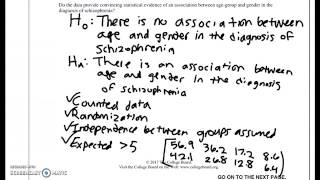 Do the data provide convincing statistical evidence of an association between age-group and gender in the
diagnosis of schizophrenia?
Ho: There is no association between
age and gender in the diagnosis of
schizophrenia
Ha: There is an association between
age and gender in the diagnosis
of schizophrenia
✓Counted data
✓Randomization
✓Independence between groups assumed
✓Expected >5
56.9 36.2 17.2 8.6
42.1 26.8 12.8 6.4
© 2017 The College Board.
Visit the College Board on the Web: www.collegeboard.org.
GO ON TO THE NEXT PAGE.